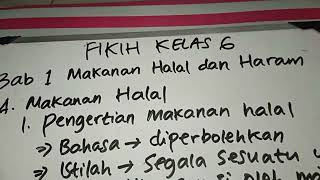 FIKIH KELAS 6
Bab 1 Makanan Halal dan Haram
A. Makanan Halal
1. Pengertian makanan halal
⇒ Bahasa → diperbolehkan
⇒ Istilah → Segala sesuatu